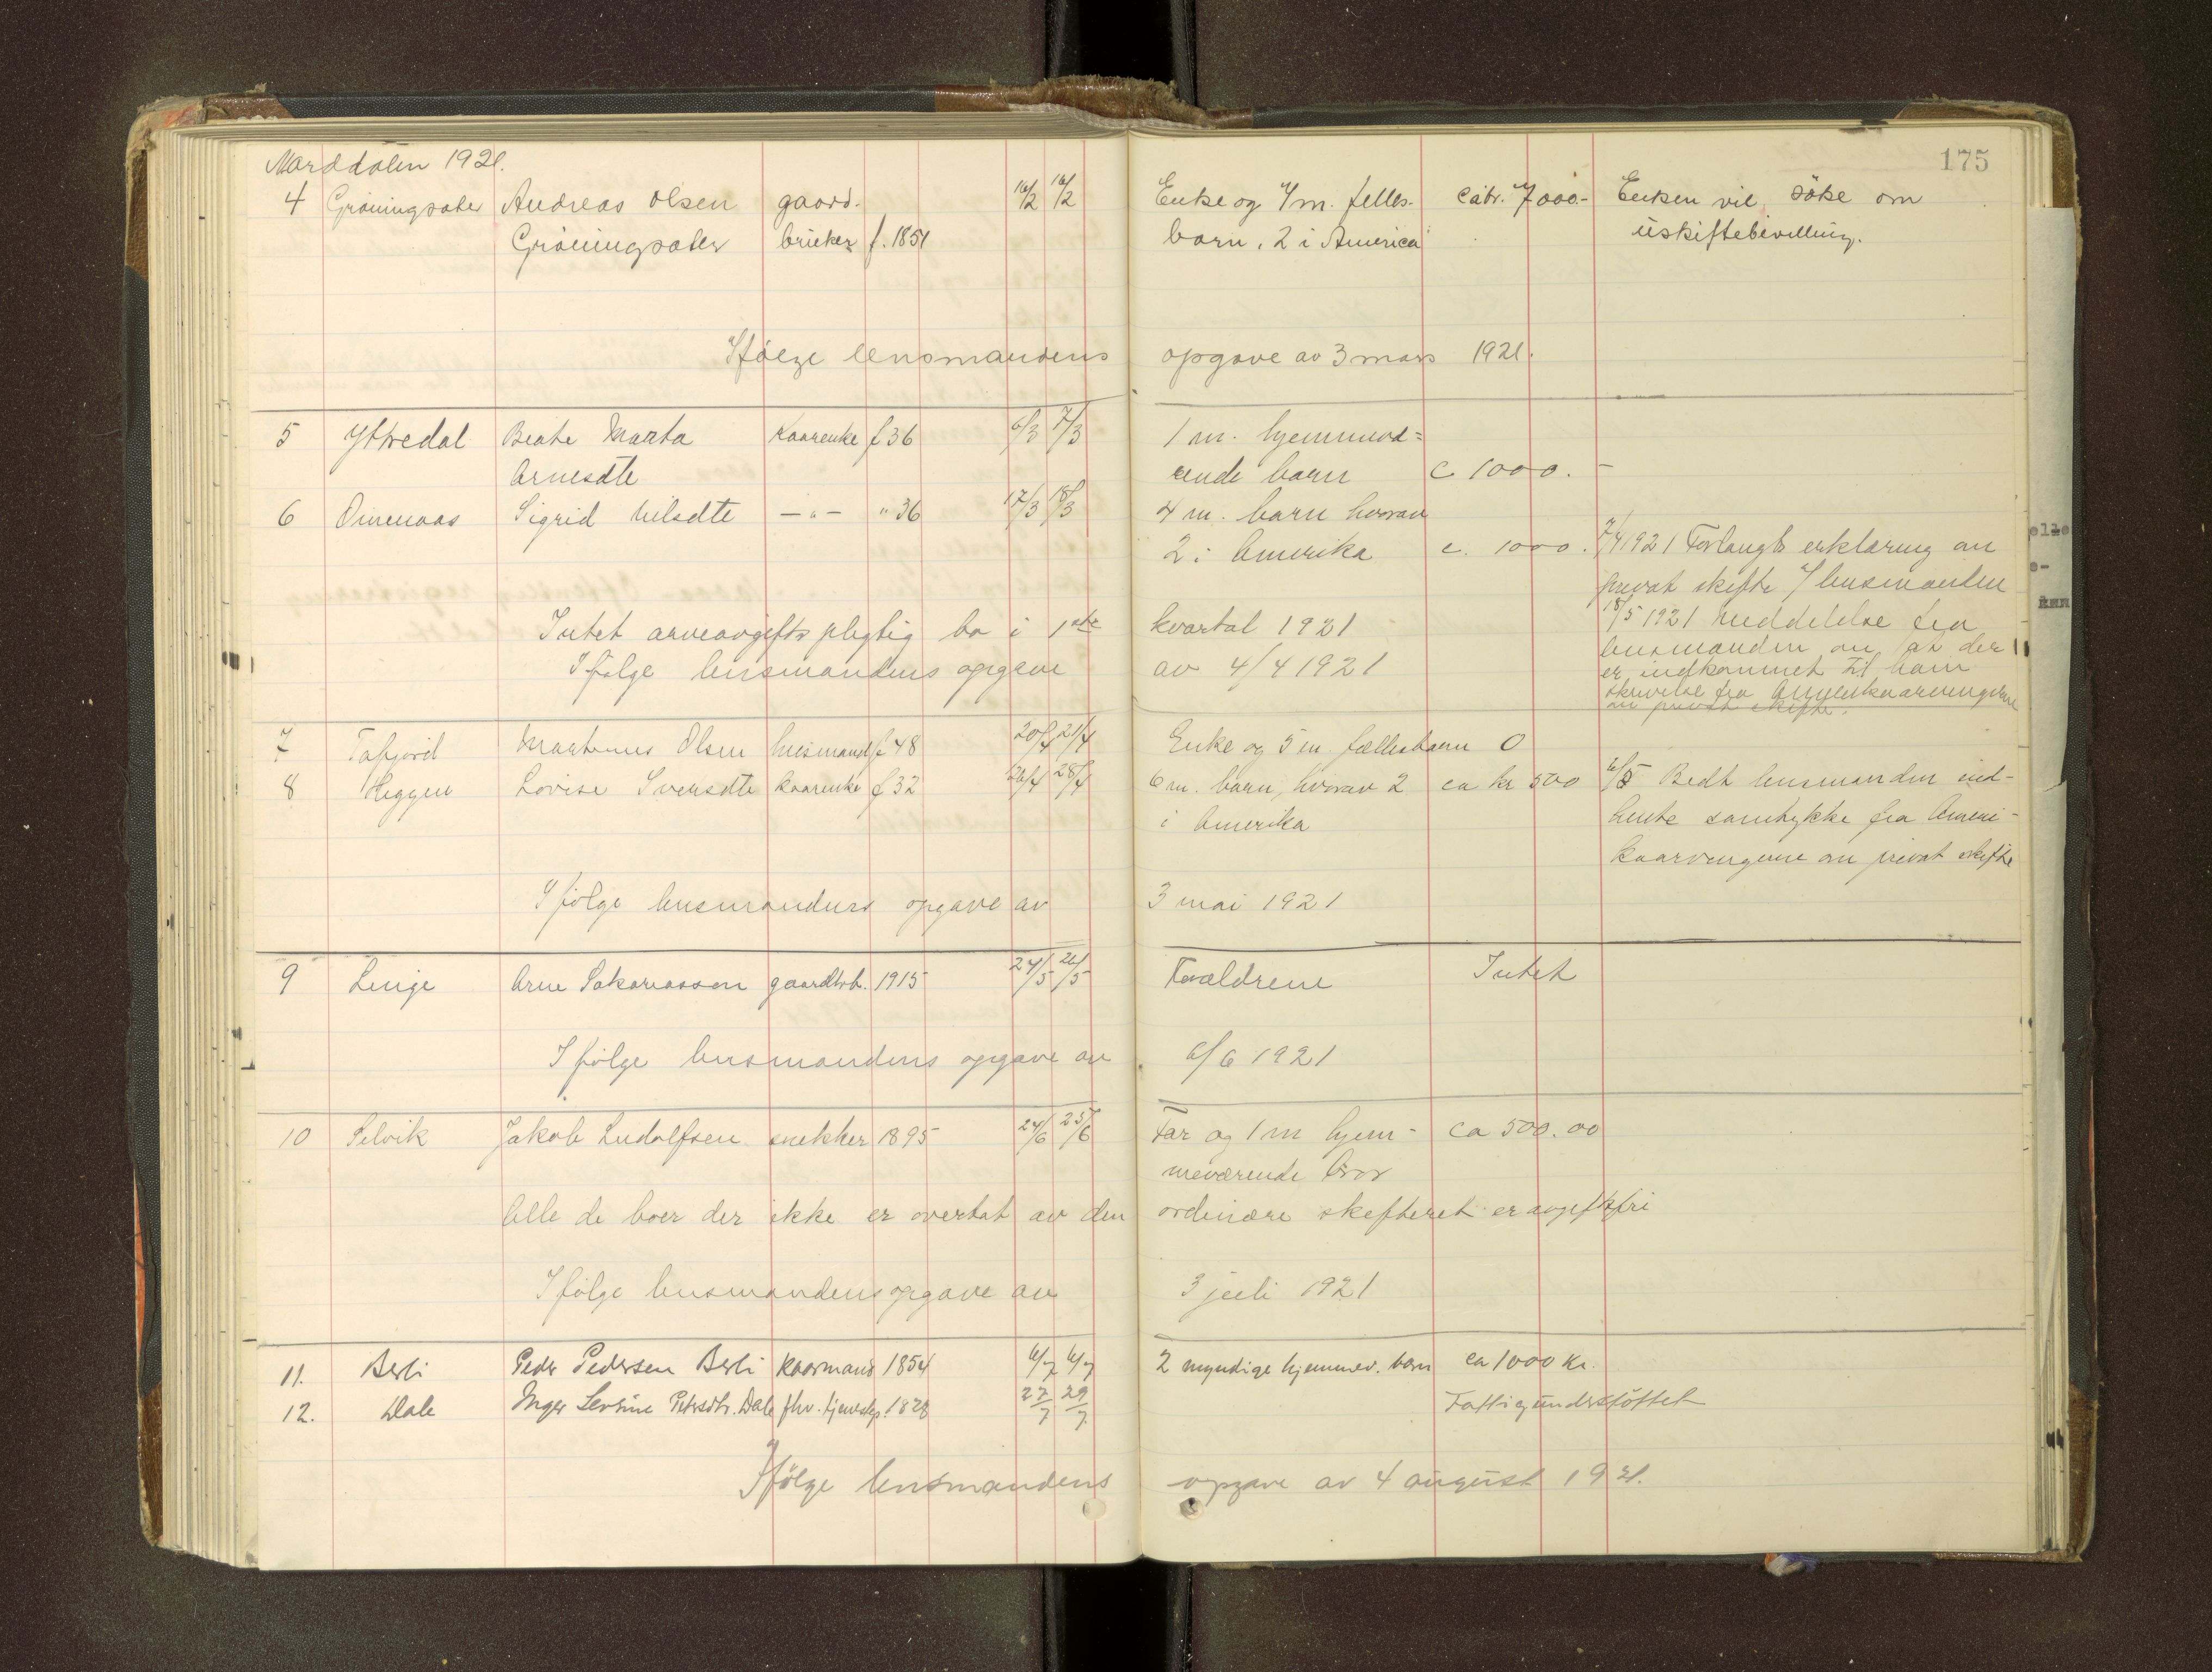 175
Norddalen 1921.
4 Gröningsæter Andreas Olsen gaard- 16/2 16/2 Enke og 7 m. felles- Ca kr. 7000.- Enken vil söke om
Gröningsæter bruker f. 1851 barn, 2 i America uskiftebevilling.
Ifölge lensmandens opgave av 3 mars 1921.
5 Yttredal Beate Marta Kaarenke f 36 6/3 7/3 1 m. hjemmevæ=
Arnesdtr rende barn c 1000.-
6 Omenaas Sigrid Nilsdtr —"— " 36 17/3 18/3 4 m. barn hvorav
2 i Amerika c. 1000. 7/4 1921 Forlangt erklæring om
privat skifte / lensmanden
Intet arveavgiftspligtig bo i 1ste kvartal 1921 18/5 1921 Meddelelse fra
lensmanden om at der
Ifölge lensmandens opgave av 4/4 1921 er indkommet til ham
skrivelse fra Amerikaarvingerne
om privat skifte.
7 Tafjord Martinus Olsen husmand f 48 20/4 21/4 Enke og 5 m. fællesbarn 0
8 Heggen Lovise Iversdtr kaarenke f 32 26/4 28/4 6 m. barn, hvorav 2 ca kr 500 6/5 Bedt lensmanden ind-
i Amerika hente samtykke fra Ameri-
kaarvingerne om privat skifte
Ifölge lensmandens opgave av 3 mai 1921
9 Linge Arne Sakariassen gaardbr. 1915 24/5 26/5 Forældrene Intet
Ifölge lensmandens opgave av 6/6 1921
10 Selvik Jakob Ludolfsen snekker 1895 24/6 25/6 Far og 1 m hjem- ca 500.00
meværende bror
Alle de boer der ikke er overtat av den ordinære skifteret er avgiftsfri
Ifölge lensmandens opgave av 3 juli 1921
11. Berli Peder Pedersen Berli Kaarmand 1854 6/7 6/7 2 myndige hjemmev. barn ca 1000 kr.
12. Dale Inger Sevrine Petersdtr. Dale fhv. tjenestep. 1828 27/7 29/7 Fattigunderstöttet
Ifölge lensmandens opgave av 4 august 1921.
elle
e-